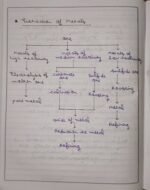 * Extraction of metals
ore
metals of high reactivity
metals of medium reactivity
metals of low reactivity
Electrolysis of molten ore
carbonate ore
sulphide ore
sulphide ores
pure metal
calcination
Roasting
Roasting
metal
Refining
oxide of metal
Reduction to metal
Refining